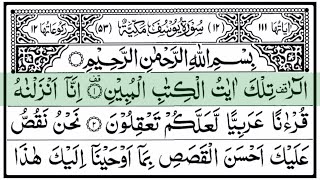 اٰیَاتُهَا ١١١ (١٢) سُوْرَةُ يُوْسُفَ مَكِّيَّةٌ (٥٣) رُكُوْعَاتُهَا ١٢
بِسْمِ اللّٰهِ الرَّحْمٰنِ الرَّحِيْمِ
الٓرٰ ۚ تِلْكَ اٰيٰتُ الْكِتٰبِ الْمُبِيْنِ ۟ۙ ١ اِنَّاۤ اَنْزَلْنٰهُ
قُرْءٰنًا عَرَبِيًّا لَّعَلَّكُمْ تَعْقِلُوْنَ ٢ نَحْنُ نَقُصُّ
عَلَيْكَ اَحْسَنَ الْقَصَصِ بِمَاۤ اَوْحَيْنَاۤ اِلَيْكَ هٰذَا